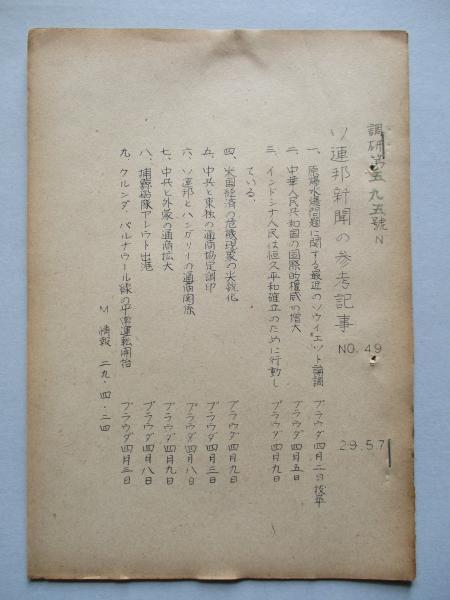 調研第五九五號 N
ソ連邦新聞の参考記事 NO.49 29.5.7
一、原爆水爆問題に関する最近のソウイエット論調 プラウダ四月二日抜萃
二、中華人民共和国の国際的権威の増大 プラウダ四月五日
三、インドシナ人民は恒久平和確立のために行動し
ている。 プラウダ四月九日
四、米国経済の危機現象の尖鋭化 プラウダ四月九日
五、中共と東独の通商協定調印 プラウダ四月三日
六、ソ連邦とハンガリーの通商関係 プラウダ四月八日
七、中共と外蒙の通商拡大 プラウダ四月九日
八、捕鯨船隊アレウト出港 プラウダ四月八日
九、クルンダ バルナウール線の平常運転開始 プラウダ四月三日
M 情報 二九・四・二四